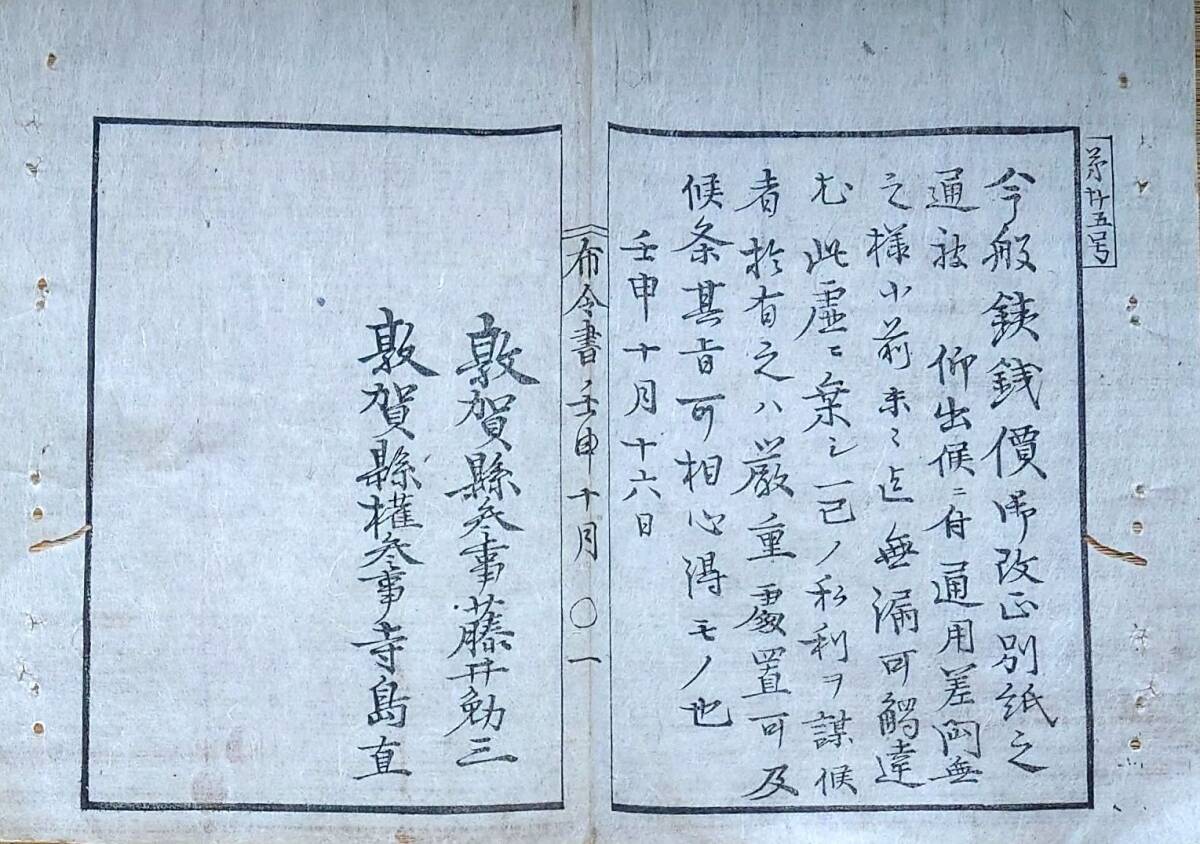 第廿五号
今般銕銭價御改正別紙之
通被 仰出候ニ付通用差閊無
之様小前末々迄無漏可觸達
尤此虚ニ棄シ一己ノ私利ヲ謀候
者於有之ハ厳重處置可及
候条其旨可相心得モノ也
壬申十月十六日
布令書 壬申十月 〇 一
敦賀縣参事藤井勉三
敦賀縣權参事寺島直